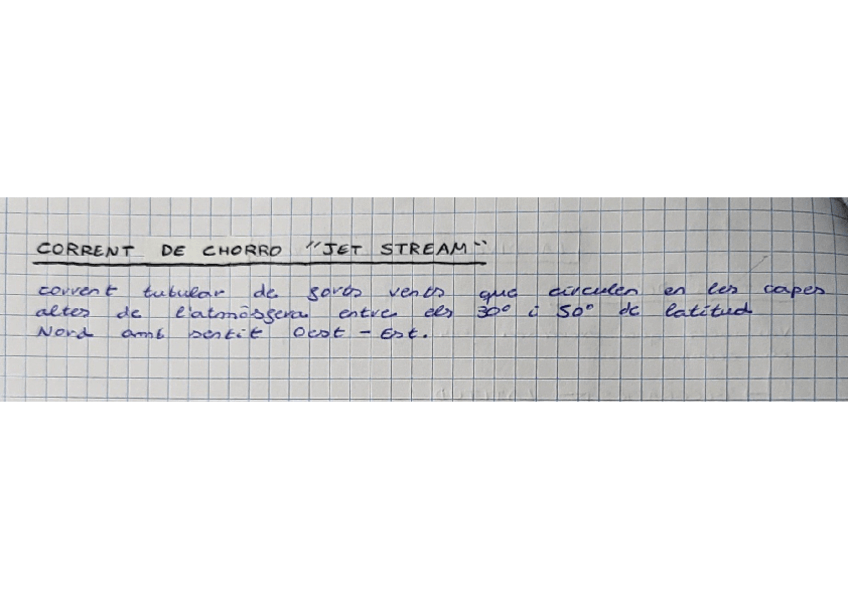 CORRENT DE CHORRO "JET STREAM"
corrent tubular de forts vents que circulen en les capes
altes de l'atmòsfera entre els 30º i 50º de latitud
Nord amb sentit Oest - Est.